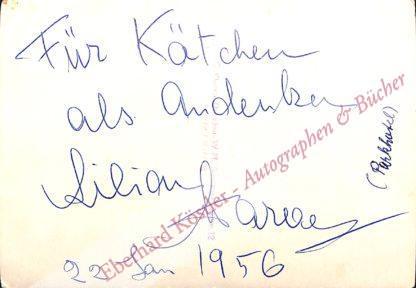 Für Kätchen
als Andenken
Lilian Harvey
22 Jan 1956
(Parkhotel)
Eberhard Köstler - Autographen & Bücher